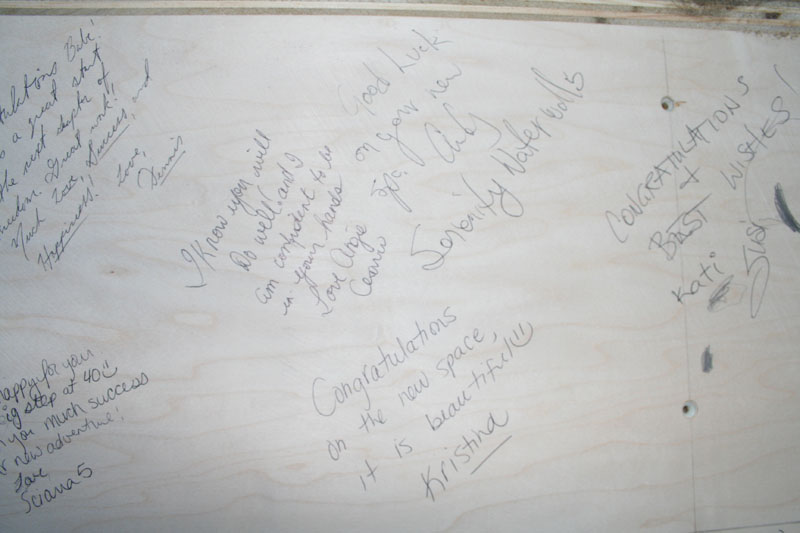 Babe!
a great start
the next chapter of
Great work!!
Much Love, Success, and
Happiness! Love,
Dennis
I know you will
Do well! and I
am confident to be
in your hands
Love Angie
Good Luck
on your new
spa.
Serenity Waterwalls
CONGRATULATIONS
+
BEST WISHES!
Kati
happy for your
big step at 40
you much success
new adventure!
Love
Congratulations
on the new space,
it is beautiful!!
Kristina